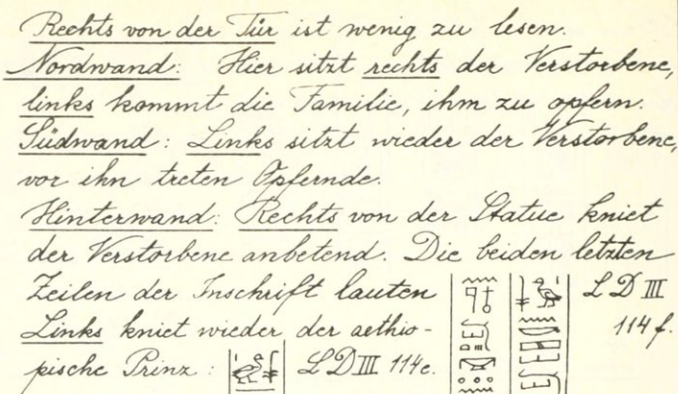 Rechts von der Tür ist wenig zu lesen.
Nordwand: Hier sitzt rechts der Verstorbene,
links kommt die Familie, ihm zu opfern.
Südwand: Links sitzt wieder der Verstorbene,
vor ihn treten Opfernde.
Hinterwand: Rechts von der Statue kniet
der Verstorbene anbetend. Die beiden letzten
Zeilen der Inschrift lauten LD III
Links kniet wieder der aethio- 114 f.
pische Prinz: LD III 114e.